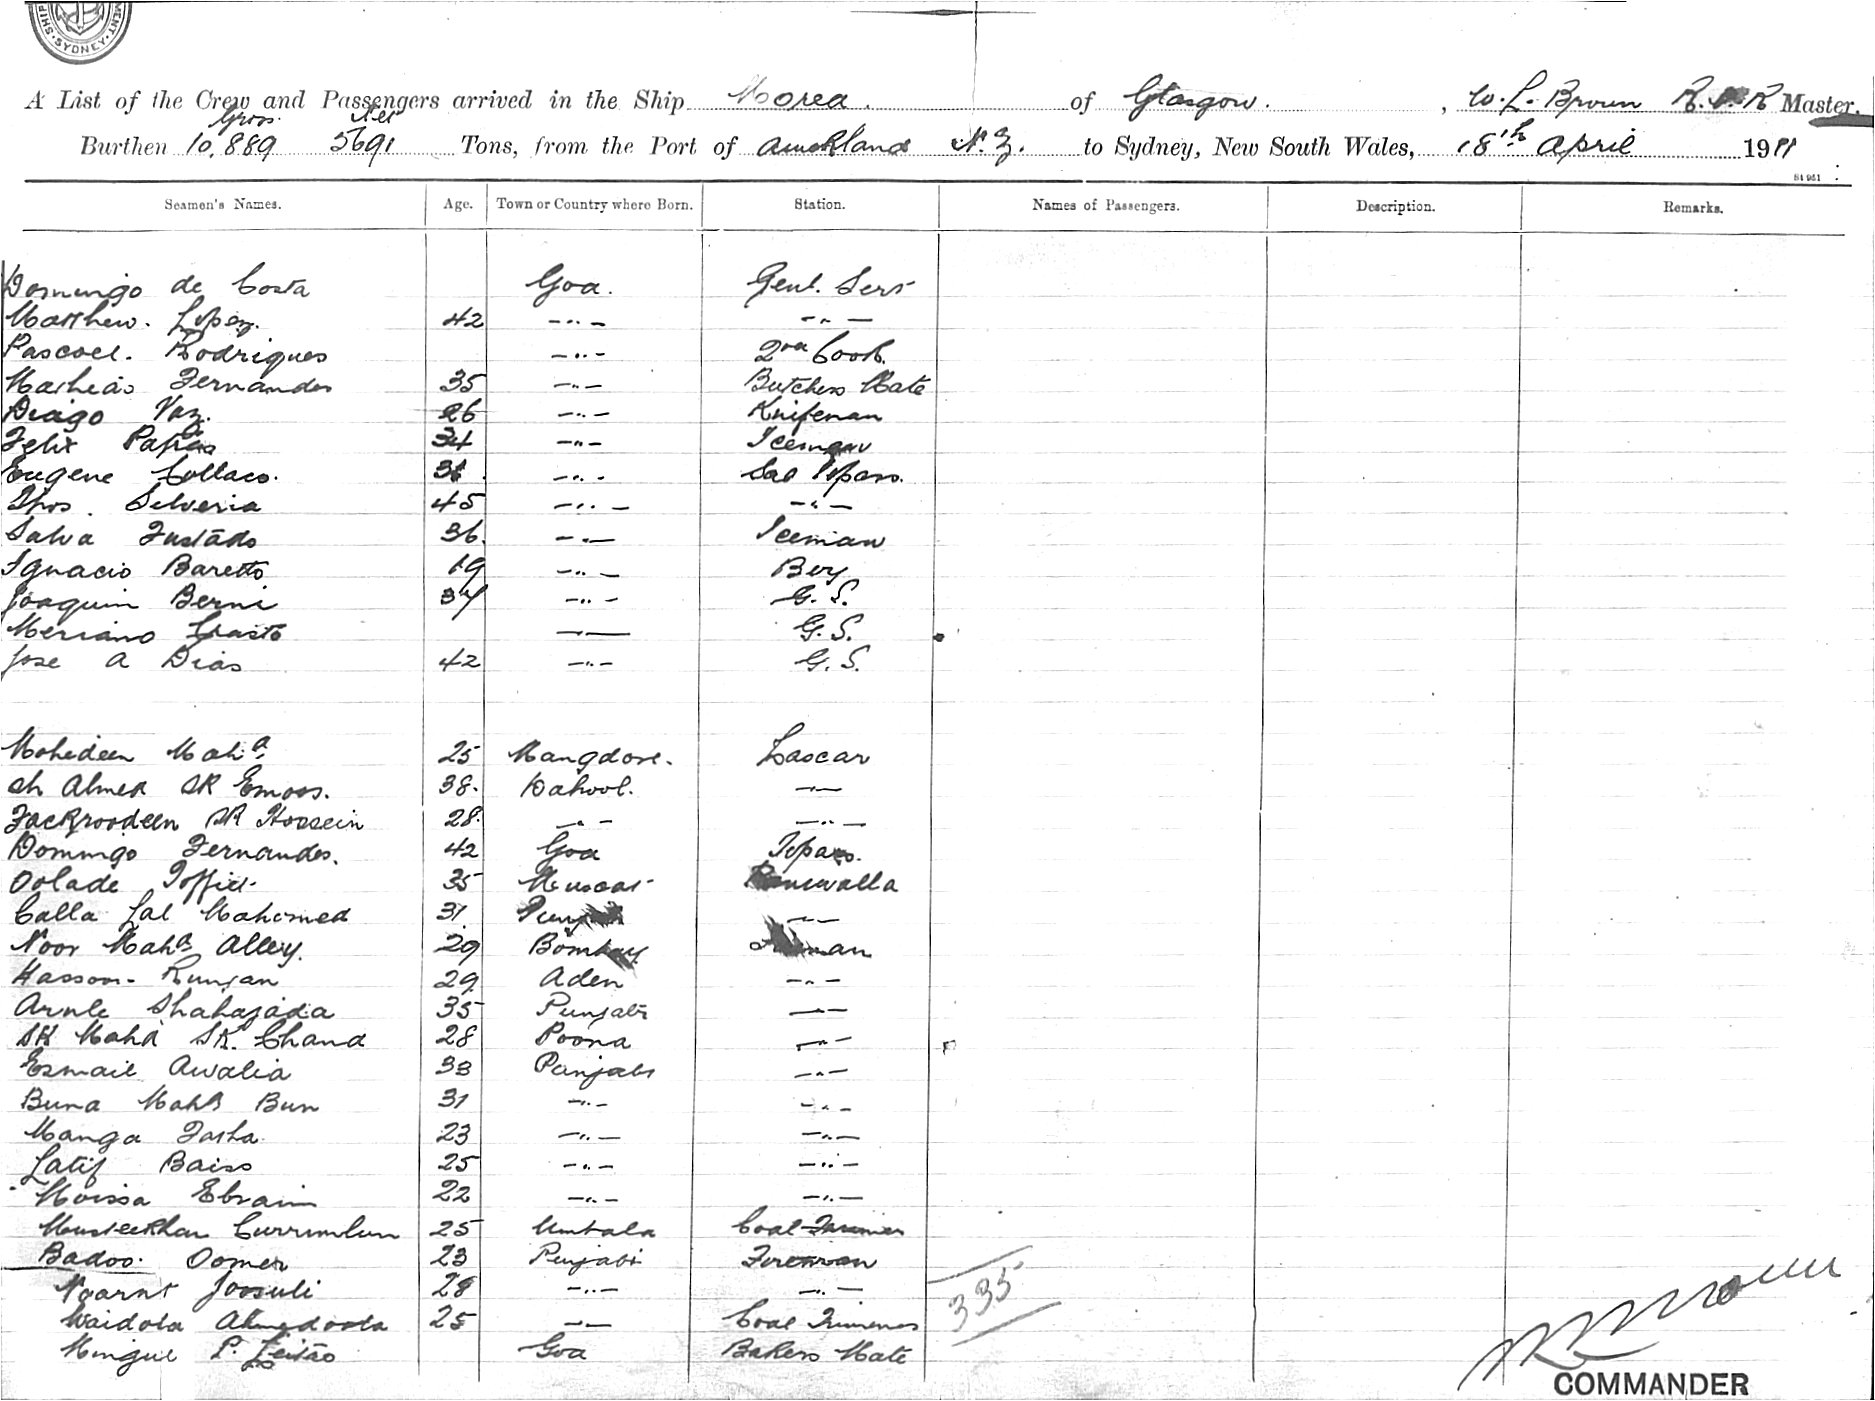 SHIP MENT. SYDNEY
A List of the Crew and Passengers arrived in the Ship Morea. of Glasgow. , W. L. Brown R.N.R Master,
Gross. Net
Burthen 10,889 5691 Tons, from the Port of Auckland N.Z. to Sydney, New South Wales, 18th April 1911
St 951
Seamen's Names. Age. Town or Country where Born. Station. Names of Passengers. Description. Remarks.
Domingo de Costa Goa. Genl. Serv
Matthew. Lopez. 42 -"- -"-
Pascoel. Rodrigues -"- 2nd Cook.
Matheas Fernandes 35 -"- Butchers Mate
Diago Vaz. 26 -"- Knifeman
Felix 34 -"- Iceman
Eugene Collaco. -"- Topass.
Thos. Silveria 45 -"- -"-
Salva Fustado 36. -"- Iceman
Ignacio Baretto 19 -"- Boy
Joaquim Berni 34 -"- G. S.
Meriano -"- G. S.
Jose A Dias 42 -"- G. S.
Mohideen Mahd. 25 Mangdore. Lascar
Sh Ahmed SK Emoos. 38. Dahool. -"-
Fackroodeen SK Hossein 28. -"- -"-
Domingo Fernandes. 42 Goa Topass.
Oolade Toffick 35 Muscat
Calla Lal Mahomed 31 -"-
Noor Mahd Alley. 29 Bombay
Hassoon Runjan 29 Aden -"-
Arnle Shahajada 35 Punjabi -"-
SK Mahd SK. Chand 28 Poona -"-
Esmail Awalia 33 Punjabi -"-
Buna Mahd Bun 31 -"- -"-
Manga Fasha 23 -"- -"-
Latif Baiss 25 -"- -"-
Moissa Ebraim 22 -"- -"-
Musteekhan Currumlum 25 Umbala Coal Trimmer
Badoo. Oomer 23 Punjabi Fireman
Joosuli 28 -"- -"-
Waidola Ahmedoola 25 -"- Coal Trimmer
Mingul P. Leitao Goa Bakers Mate
335
COMMANDER